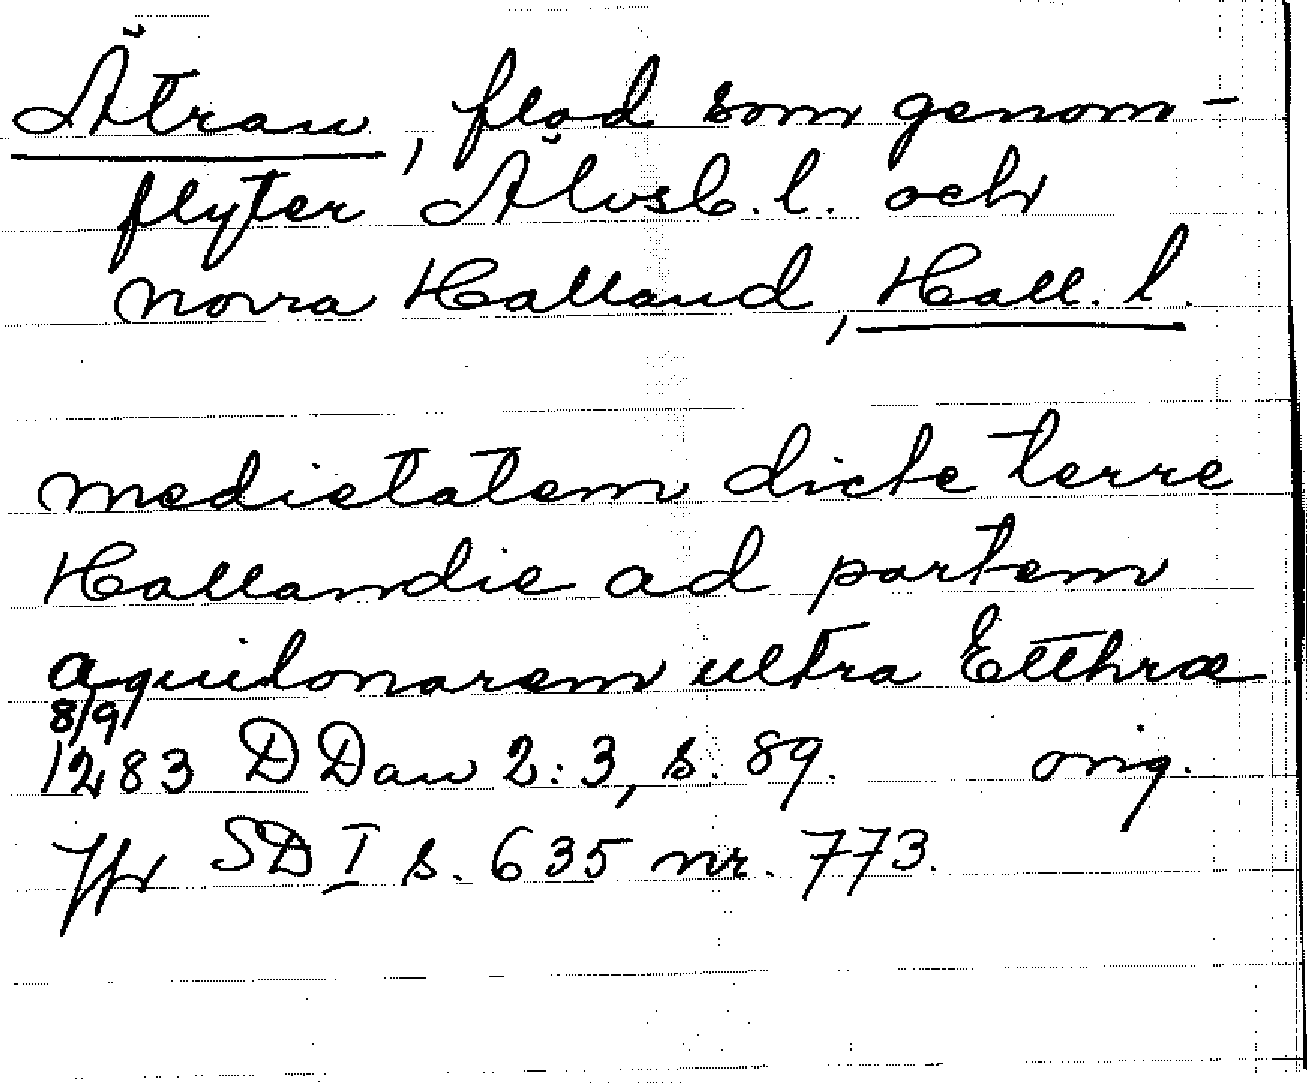 Ätran, flod som genom-
flyter Älvsb. l. och
norra Halland, Hall. l.
medietatem dicte terre
Hallandie ad partem
aquilonarem ultra Etthræ
8/9
1283 DDan 2:3, s. 89. orig.
Jfr SD I s. 635 nr. 773.